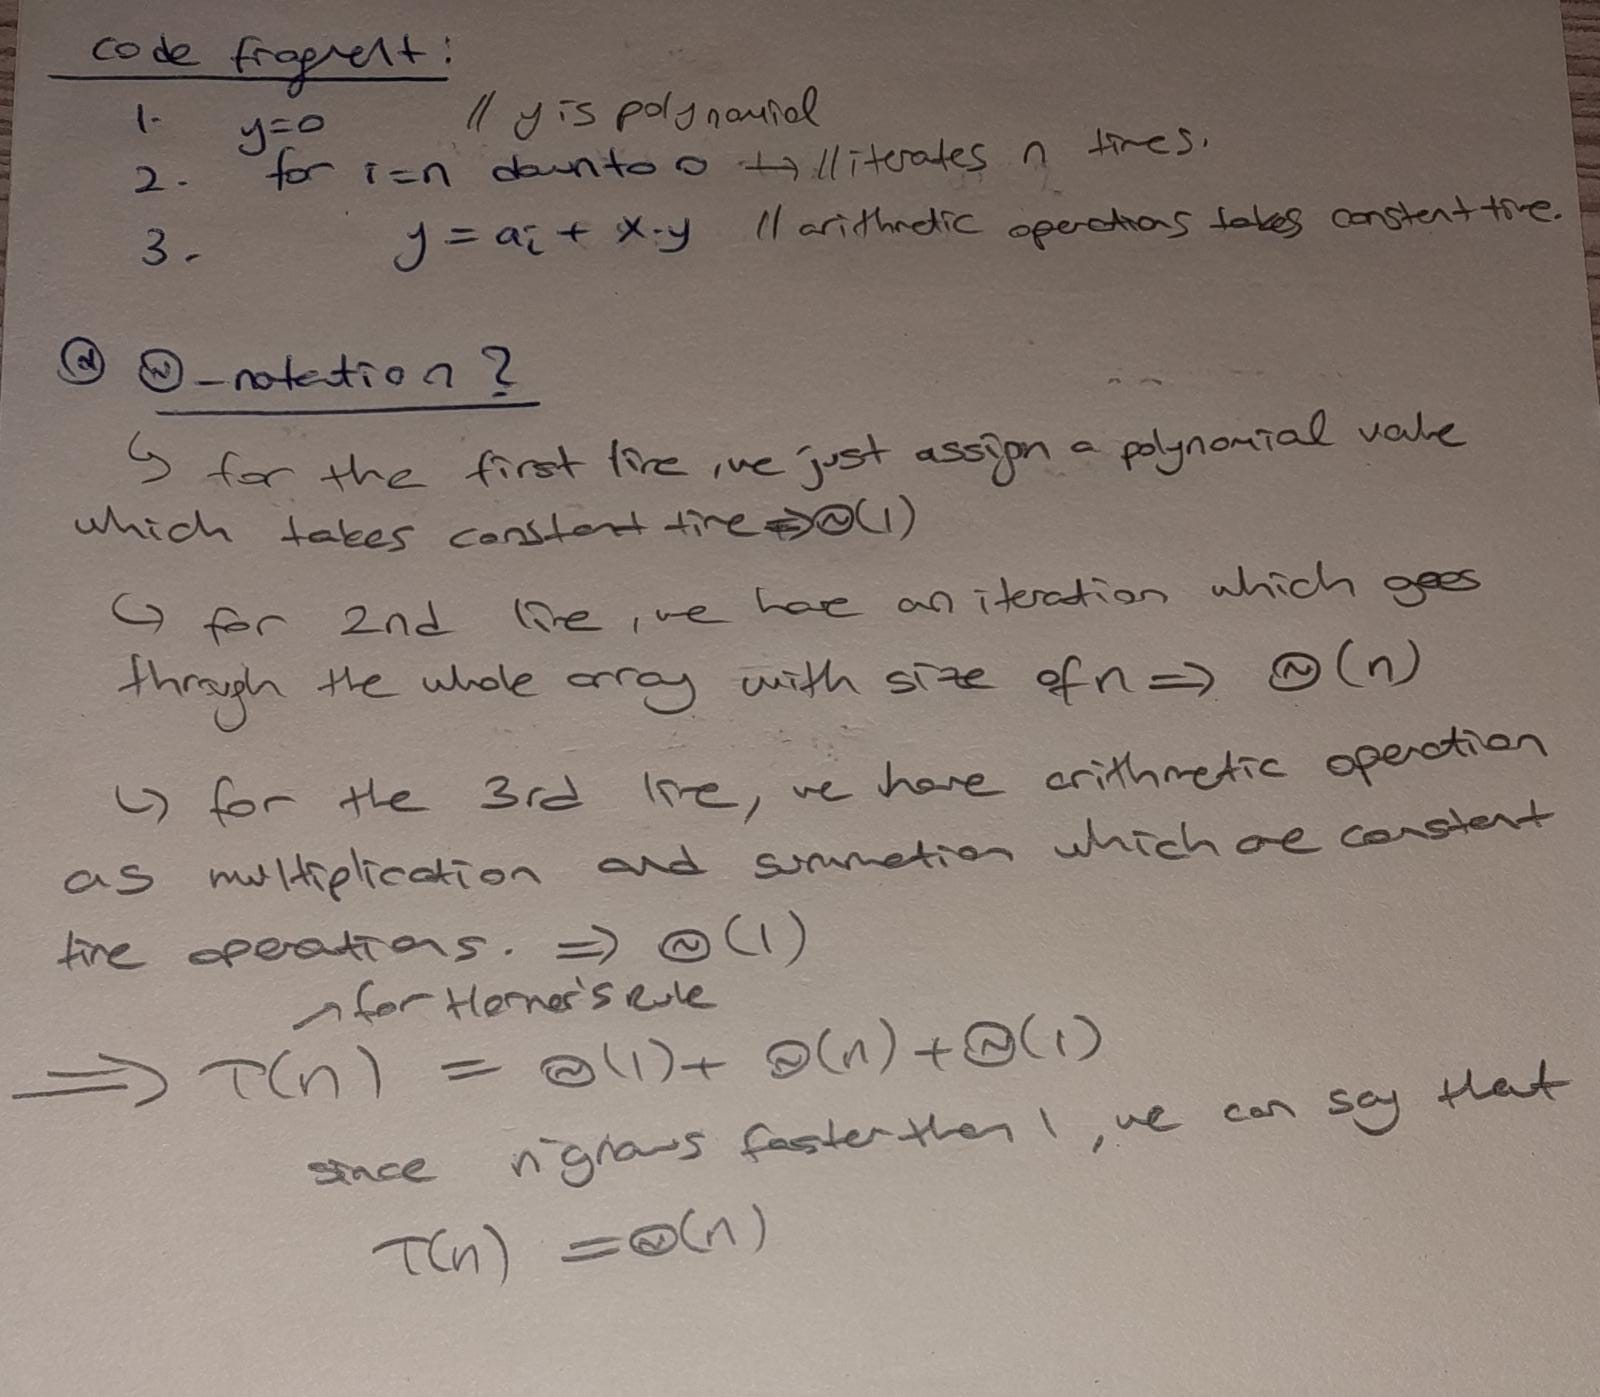 code fragment:
1. y=0 // y is polynomial
2. for i=n down to 0 ↦ // iterates n times.
3. y = aᵢ + x.y // arithmetic operations takes constant time.
ⓐ Θ-notation?
↳ for the first line, we just assign a polynomial value
which takes constant time ⇒ Θ(1)
↳ for 2nd line, we have an iteration which goes
through the whole array with size of n ⇒ Θ(n)
↳ for the 3rd line, we have arithmetic operation
as multiplication and summation which are constant
time operations. ⇒ Θ(1)
↗ for Horner's Rule
⇒ T(n) = Θ(1) + Θ(n) + Θ(1)
since n grows faster than 1, we can say that
T(n) = Θ(n)